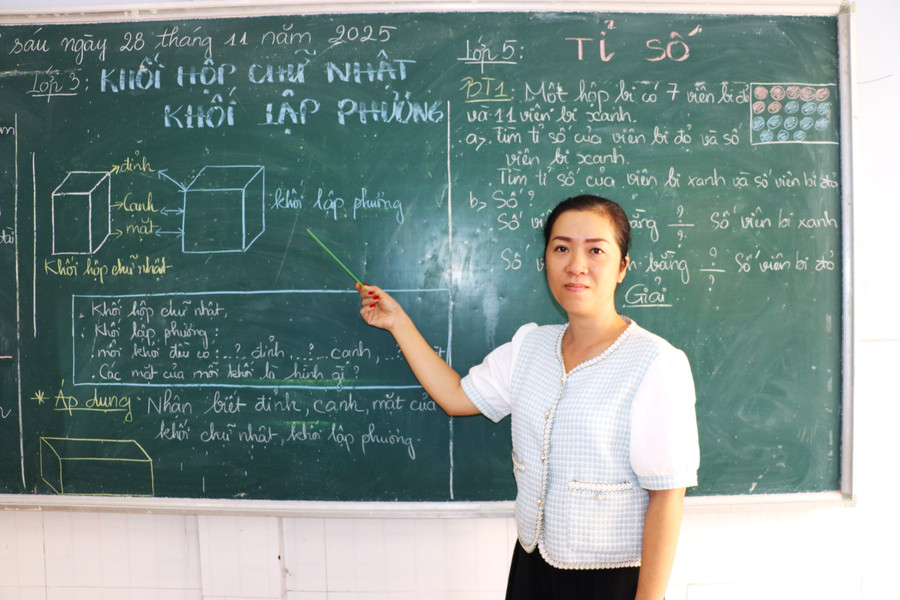 sáu ngày 28 tháng 11 năm 2025
Lớp 3: KHỐI HỘP CHỮ NHẬT
KHỐI LẬP PHƯƠNG
đỉnh
cạnh
mặt
khối lập phương
Khối hộp chữ nhật
. Khối hộp chữ nhật,
. Khối lập phương:
. mỗi khối đều có: ..?. đỉnh, ..?.. cạnh, ..?
. Các mặt của mỗi khối là hình gì?
* Áp dụng: Nhận biết đỉnh, cạnh, mặt của
khối chữ nhật, khối lập phương.
Lớp 5: TỈ SỐ
BT1: Một hộp bi có 7 viên bi đỏ
và 11 viên bi xanh.
a, Tìm tỉ số của viên bi đỏ và số
viên bi xanh.
. Tìm tỉ số của viên bi xanh và số viên bi đỏ
b, Số?
Số bằng ?/? Số viên bi xanh
Số bằng ?/? Số viên bi đỏ
Giải